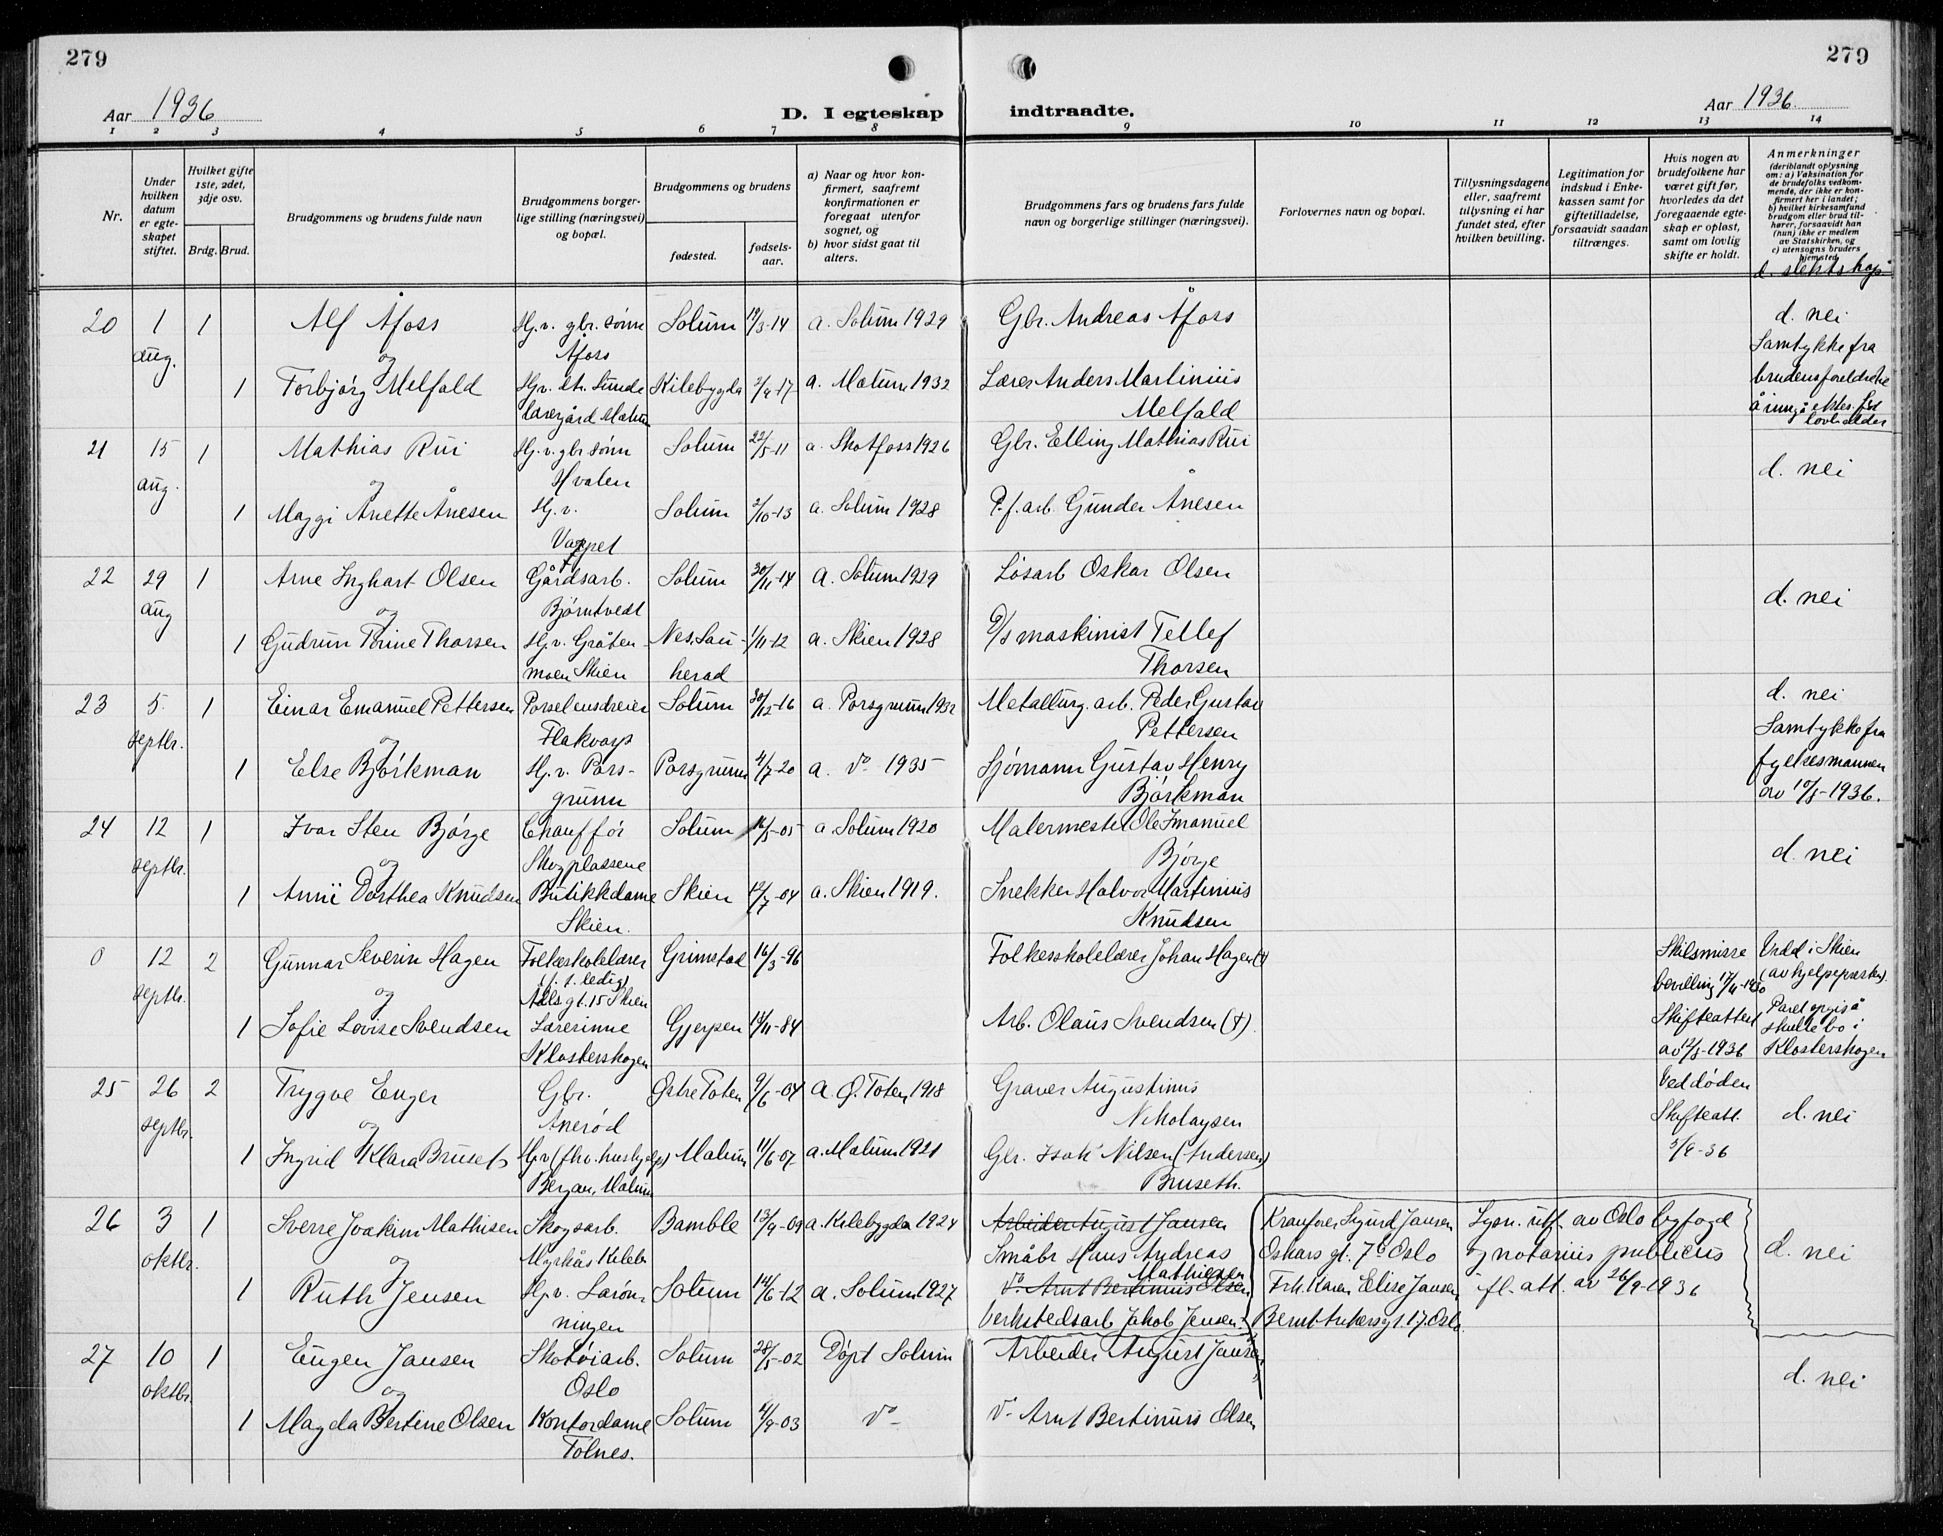 279
279
Aar 1936
D. I egteskap
indtraadte.
Aar 1936.
1 2 3 4 5 6 7 8 9 10 11 12 13 14
Nr.
Under hvilken datum er egteskapet stiftet.
Hvilket gifte 1ste, 2det, 3dje osv.
Brdg. Brud.
Brudgommens og brudens fulde navn
Brudgommens borgerlige stilling (næringsvei) og bopæl.
Brudgommens og brudens
fødested.
fødselsaar.
a) Naar og hvor konfirmert, saafremt konfirmationen er foregaat utenfor sognet, og
b) hvor sidst gaat til alters.
Brudgommens fars og brudens fars fulde navn og borgerlige stillinger (næringsvei).
Forlovernes navn og bopæl.
Tillysningsdagene eller, saafremt tillysning ei har fundet sted, efter hvilken bevilling.
Legitimation for indskud i Enkekassen samt for giftetilladelse, forsaavidt saadan tiltrænges.
Hvis nogen av brudefolkene har været gift før, hvorledes da det foregaaende egteskap er opløst, samt om lovlig skifte er holdt.
Anmerkninger
(deriblandt oplysning om: a) Vaksination for de brudefolks vedkommende, der ikke er konfirmert her i landet; b) hvilket kirkesamfund brudgom eller brud tilhører, forsaavidt han (hun) ikke er medlem av Statskirken, og c) utensogns bruders hjemsted
d. slektskap
20 1 1 Alf Åfoss Hj.v. gbr. sønn Solum 19/3-14 a. Solum 1929 Gbr. Andreas Åfoss d. nei
aug. og Åfoss Samtykke fra
1 Torbjørg Melfald Hj.v. dt. Sunde Kilebygda 2/9-17 a. Mælum 1932 Lærer Anders Martinius brudens foreldre til
lærergård Mælum Melfald å inngå ektes. før lovl. alder
21 15 1 Mathias Rui Hj.v. gbr sønn Solum 22/5-11 a. Skotfoss 1926 Gbr. Elling Mathias Rui
aug. og Hvalen d. nei
1 Maggi Anette Ånesen Hj.v. Solum 2/10-13 a. Solum 1928 P.f. arb. Gunder Ånesen
Våppet
22 29 1 Arne Inghart Olsen Gårdsarb. Solum 30/11-14 a. Solum 1929 Løsarb Oskar Olsen
aug og Bjørntvedt d. nei
1 Gudrun Torine Thorsen Hj.v. Gråten- Nes, Sau- 1/11-12 a. Skien 1928 D/s maskinist Tellef
moen Skien herad Thorsen
23 5. 1 Einar Emanuel Pettersen Porselensdreier Solum 30/12-16 a. Porsgrunn 1932 Metallurg. arb. Peder Gustav d. nei
septbr. og Flakvarp Pettersen Samtykke fra
1 Else Bjørkman Hj.v. Pors- Porsgrunn 4/7-20 a. do 1935 Sjømann Gustav Henry fylkesmannen
grunn Bjørkman av 10/8-1936.
24 12 1 Ivar Sten Bjørge Chauffør Solum 16/5-05 a Solum 1920 Malermester Ole Imanuel
septbr. og Skogplassene Bjørge d. nei
1 Anni Dorthea Knudsen Butikkdame Skien 12/7-04 a. Skien 1919. Snekker Halvor Martinius
Skien. Knudsen
0 12 2 Gunnar Severin Hagen Folkeskolelærer Grimstad 16/3-96 Folkeskolelærer Johan Hagen (+) Skilsmisse Vidd i Skien
septbr. og (f. t. ledig) bevilling 17/4-1930 (av hjelpepresten).
Aalsgt. 15 Skien Skifteattest Paret opgis å
1 Sofie Lovise Svendsen Lærerinne Gjerpen 14/11-84 Arb. Olaus Svendsen (+). av 12/8-1936 skulle bo i
Klosterskogen Klosterskogen
25 26 2 Trygve Enger Gbr. Østre Toten 9/6-04 a. Ø. Toten 1918 Graver Augustinus Ved døden
septbr. og Ånerød Nikolaysen Skifteatt. d. nei
1 Ingrid Klara Bruseth Hj.v. (fhv. hushjelp) Mælum 11/6-07 a. Mælum 1921 Gbr. Isak Nilsen (Andersen) 3/9-36
Bergan, Mælum Bruseth.
26 3 1 Sverre Joakim Mathisen Skogsarb. Bamble 13/9-09 a. Kilebygda 1924 Arbeider August Jansen Kranfører Sigurd Jansen Lysn. utf. av Oslo byfogd
oktbr. og Myrkås Kileb. Småbr Hans Andreas Mathisen Oskars gt. 7b Oslo og notarius publicus d. nei
1 Ruth Jensen Hj.v. Larøn- Solum 14/6-12 a. Solum 1927 do Arnt Bertinius Olsen Frk. Karen Elise Jansen fl. att. av 26/9-1936
ningen Verkstedsarb Jakob Jensen + Bernt Ankersgt. 17. Oslo.
27 10 1 Eugen Jansen Skotøiarb. Solum 28/5-02 Døpt Solum Arbeider August Jansen
oktbr. og Oslo d. nei
1 Magda Bertine Olsen Kontordame Solum 4/9-03 do - do - Arnt Bertinius Olsen
Tolnes.